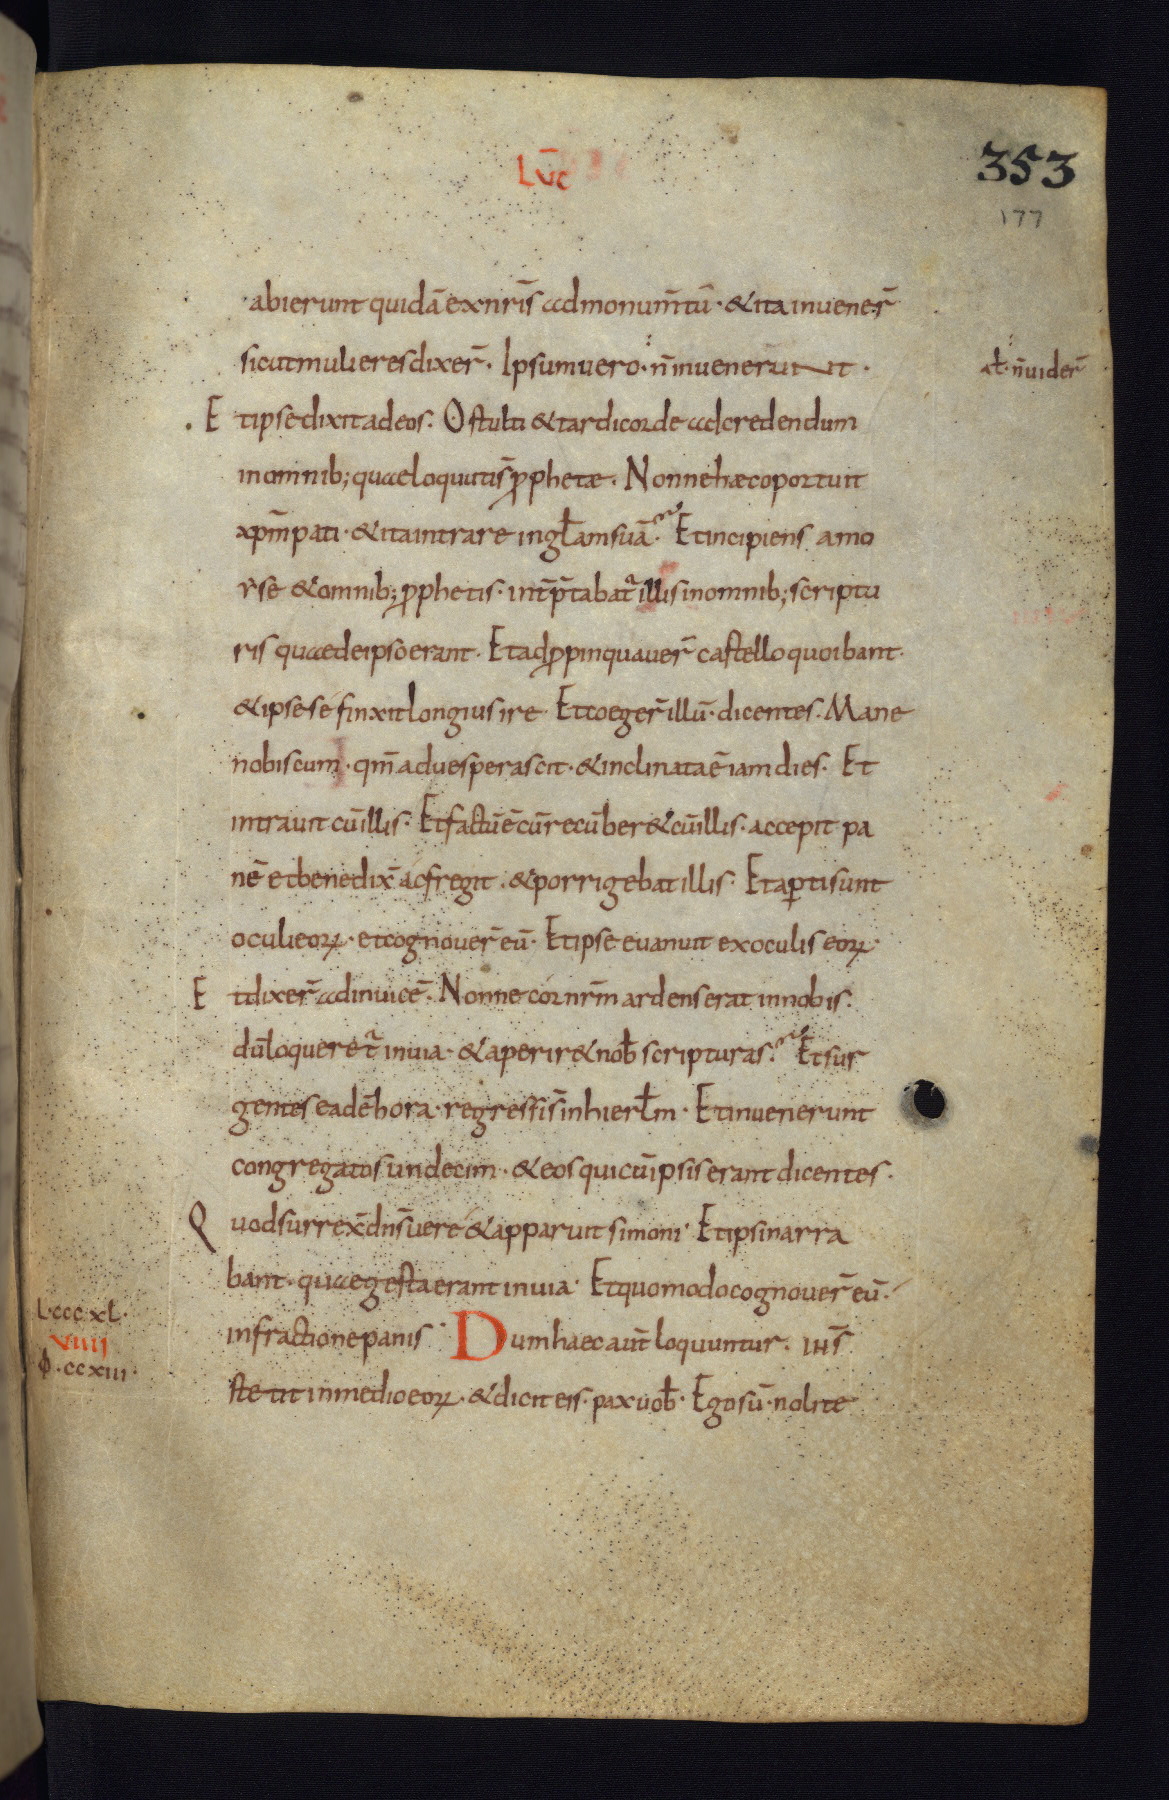 LūC
353
177
·abierunt quidā ex nr̄is ad monum̄tū· & ita inuener̄
sicut mulieres dixer̄. Ipsum uero· n̄ inuenerunt·
al̄· n̄ uider̄
Et ipse dixit ad eos. O stulti & tardi corde ad credendum
in omnib; quae loquuti s̄ ꝓphetæ. Nonne hæc oportuit
xp̄m pati· & ita intrare in gl̄am suā. Et incipiens a mo
yse & omnib; ꝓphetis· int̄p̄tabat᷑ illis in omnib; scriptu
ris quae de ipso erant. Et adꝓpinquauer̄ castello quo ibant·
& ipse sé finxit longius ire· Et coeger̄ illū· dicentes. Mane
nobiscum· qm̄ aduesperascit· & inclinata ē iam dies. Et
intrauit cū illis. Et factū ē cū recūber& cū illis· accepit pa
nē et benedix̄ ac fregit· & porrigebat illis. Et aꝑti sunt
oculi eoꝝ· et cognouer̄ eū. Et ipse euanuit ex oculis eoꝝ·
Et dixer̄ ad inuicē. Nonne cór nr̄m ardens erat in nobis·
dū loqueret᷑ in uia· & aperir& nob̄ scripturas. Et sur
gentes eadē hora· regressi s̄ in hierl̄m. Et inuenerunt
congregatos undecim· & eos qui cū ipsis erant dicentes.
Quod surrex̄ dn̄s uere & apparuit simoni· Et ipsi narra
bant· quae gesta erant in uia. Et quomodo cognouer̄ eū·
L·cccxl·
VIIII
ϕ·ccxiii·
in fractione panis· Dum haec aut̄ loquuntur· ihs̄
stetit in medio eoꝝ· & dicit eis· pax uob̄· Ego sū· nolite